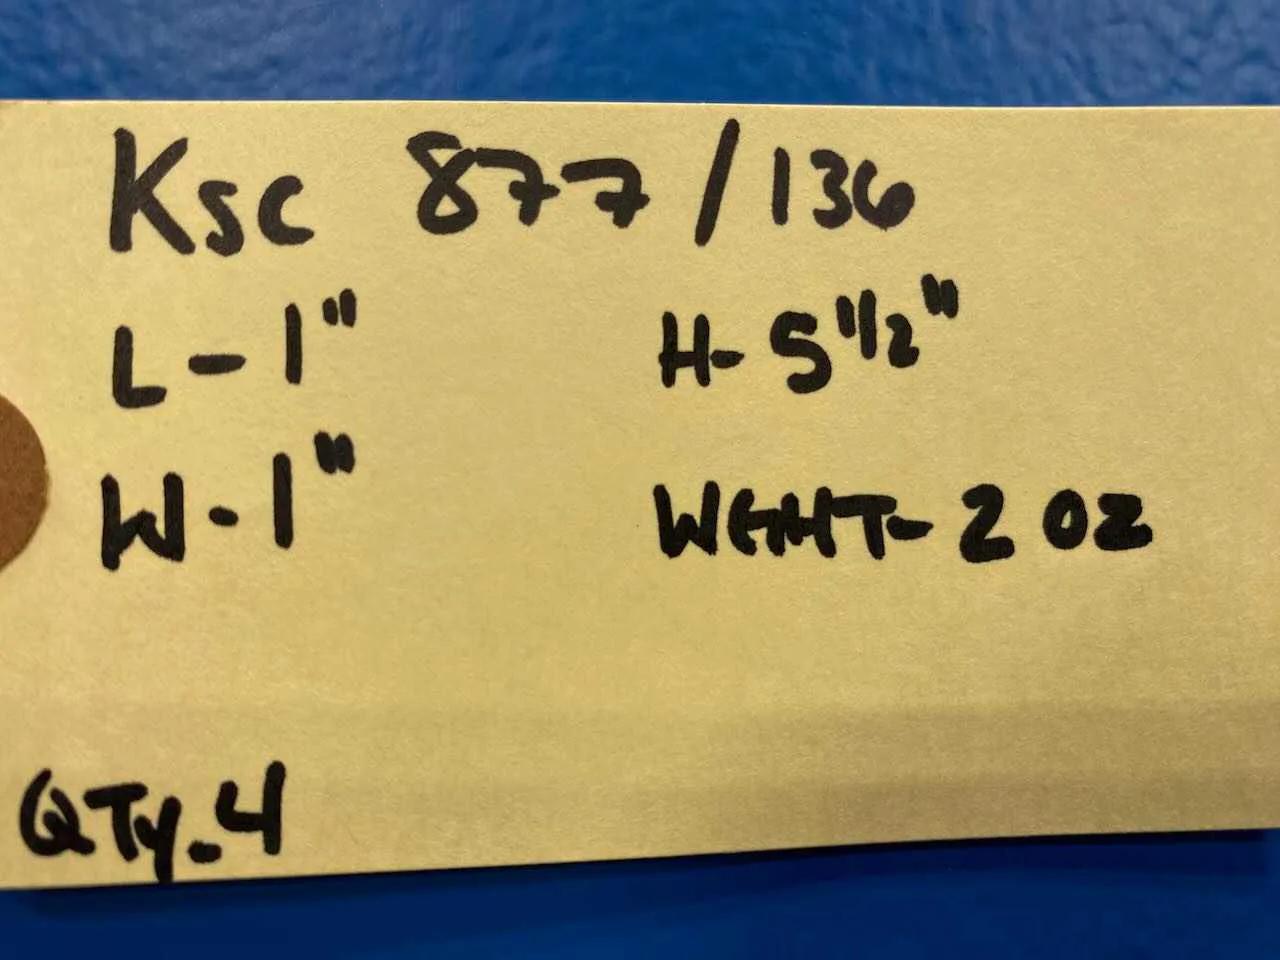 Ksc 877/136
L-1" H-5 1/2"
W-1" WGHT-2 oz
QTy.4